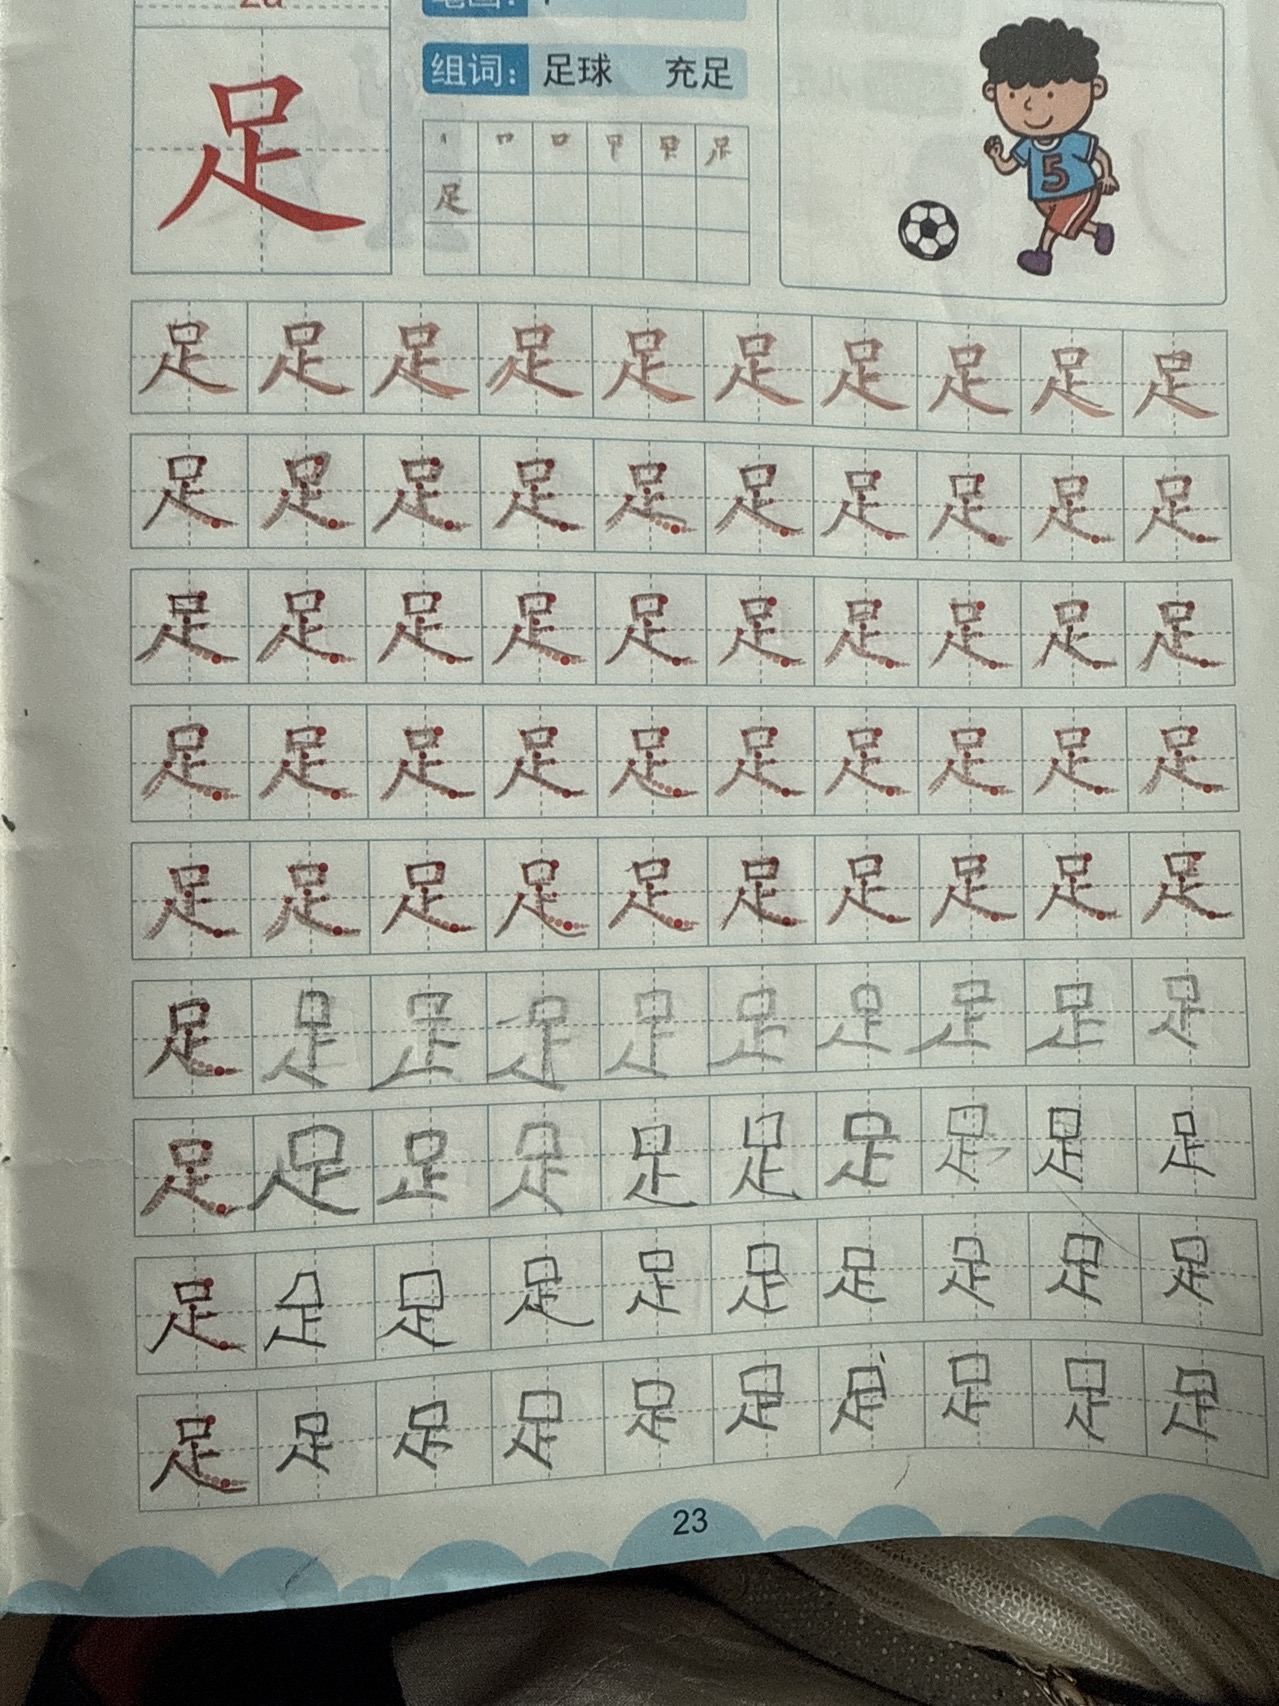 zú
足
组词: 足球 充足
足
5
足 足 足 足 足 足 足 足 足 足
足 足 足 足 足 足 足 足 足 足
足 足 足 足 足 足 足 足 足 足
足 足 足 足 足 足 足 足 足 足
足 足 足 足 足 足 足 足 足 足
足 足 足 足 足 足 足 足 足 足
足 足 足 足 足 足 足 足 足 足
足 足 足 足 足 足 足 足 足 足
足 足 足 足 足 足 足 足 足 足
23